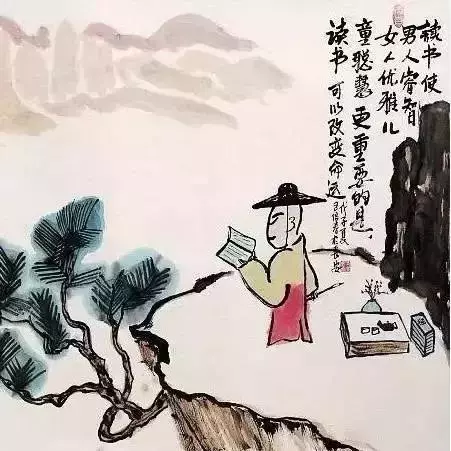 读书使
男人睿智
女人优雅儿
童聪慧更重要的是、
读书可以改变命运